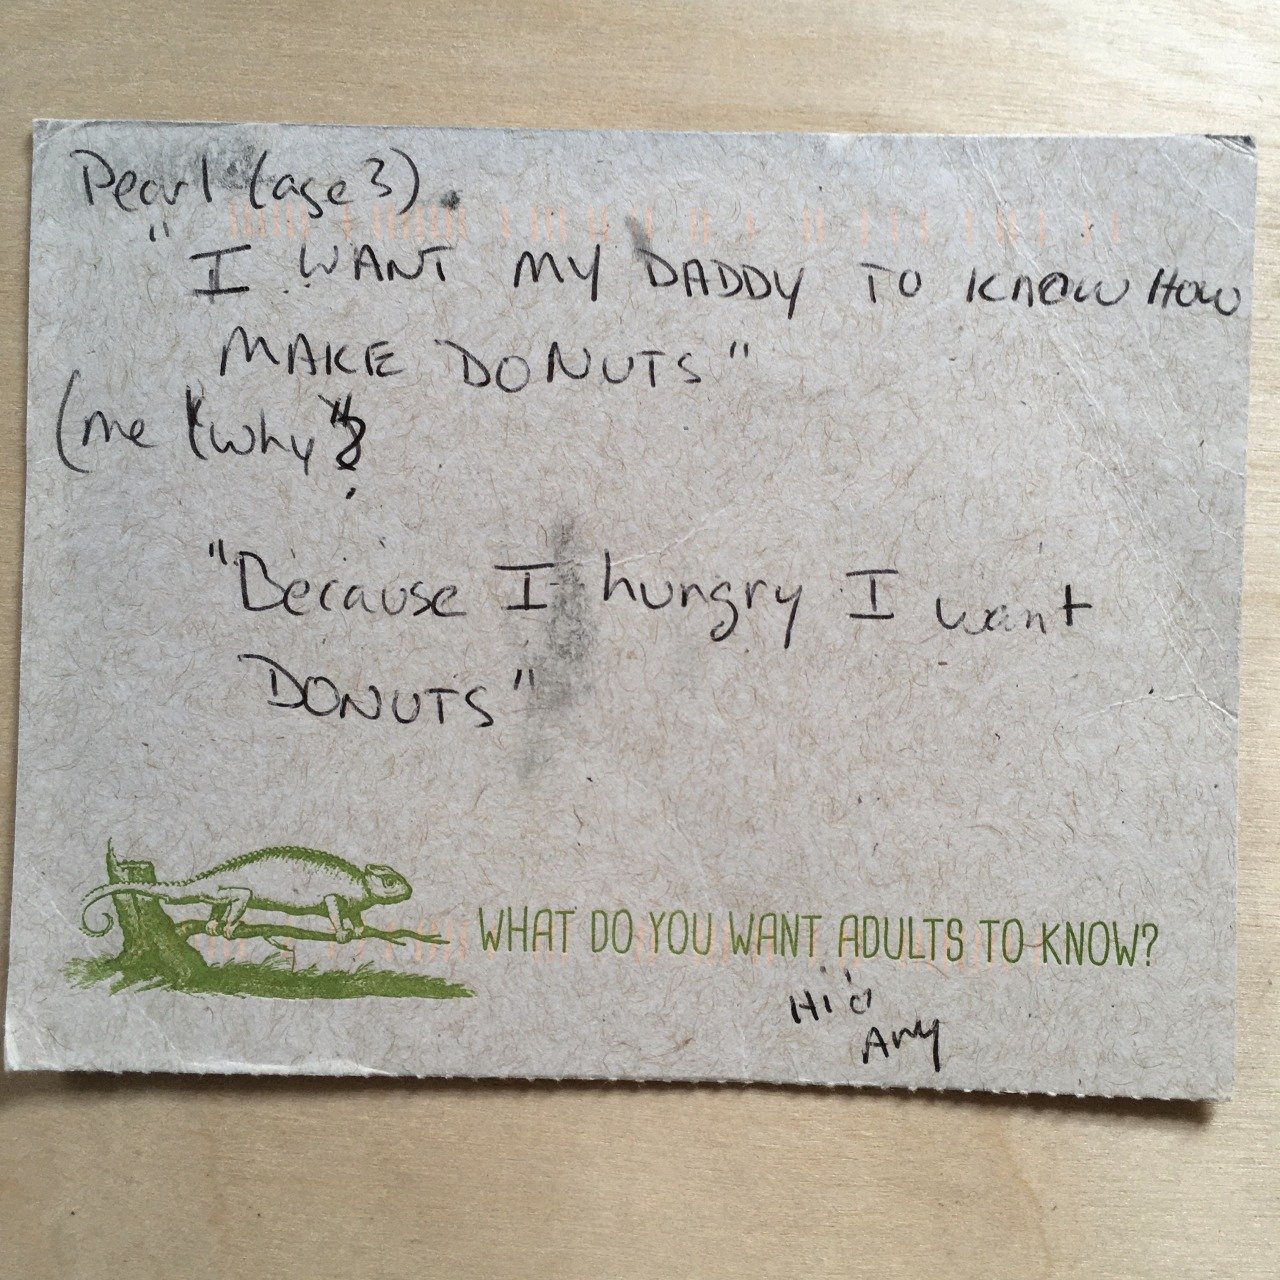 Pearl (age 3)
"I WANT MY DADDY TO KNOW HOW
MAKE DONUTS"
(me "why"?
"Because I hungry I want
DONUTS"
WHAT DO YOU WANT ADULTS TO KNOW?
Hi
Amy